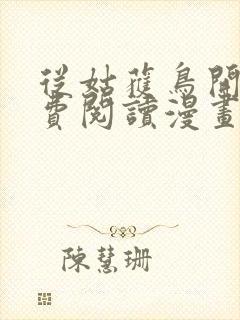 從姑蒦鳥開
費閱讀漫畫
陳慧珊